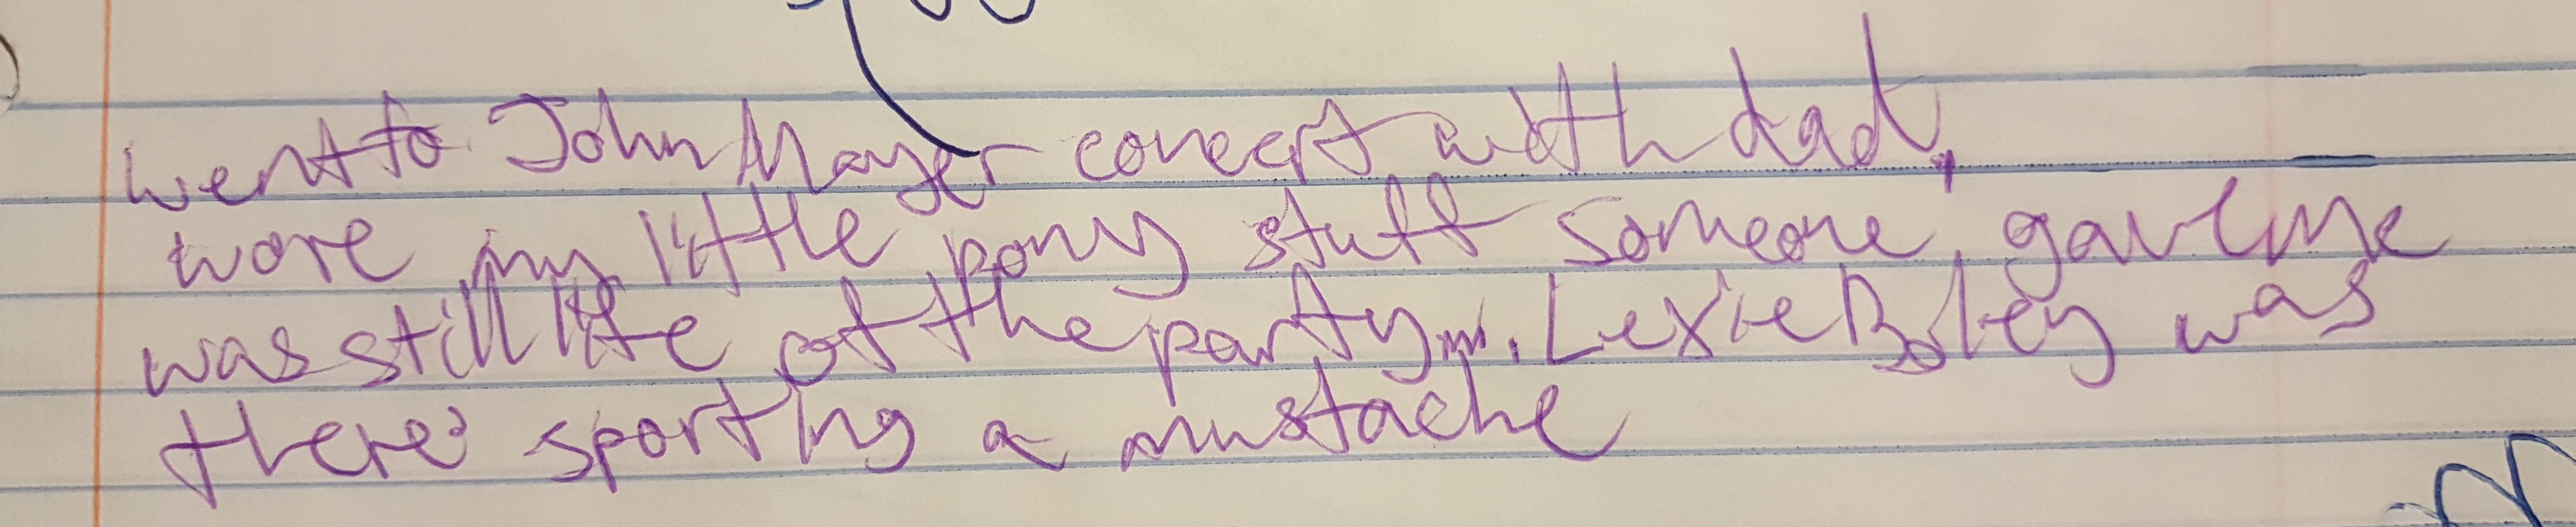 went to John Mayer concert with dad,
wore my little pony stuff someone gave me
was still life of the party... Lexie Boley was
there sporting a mustache